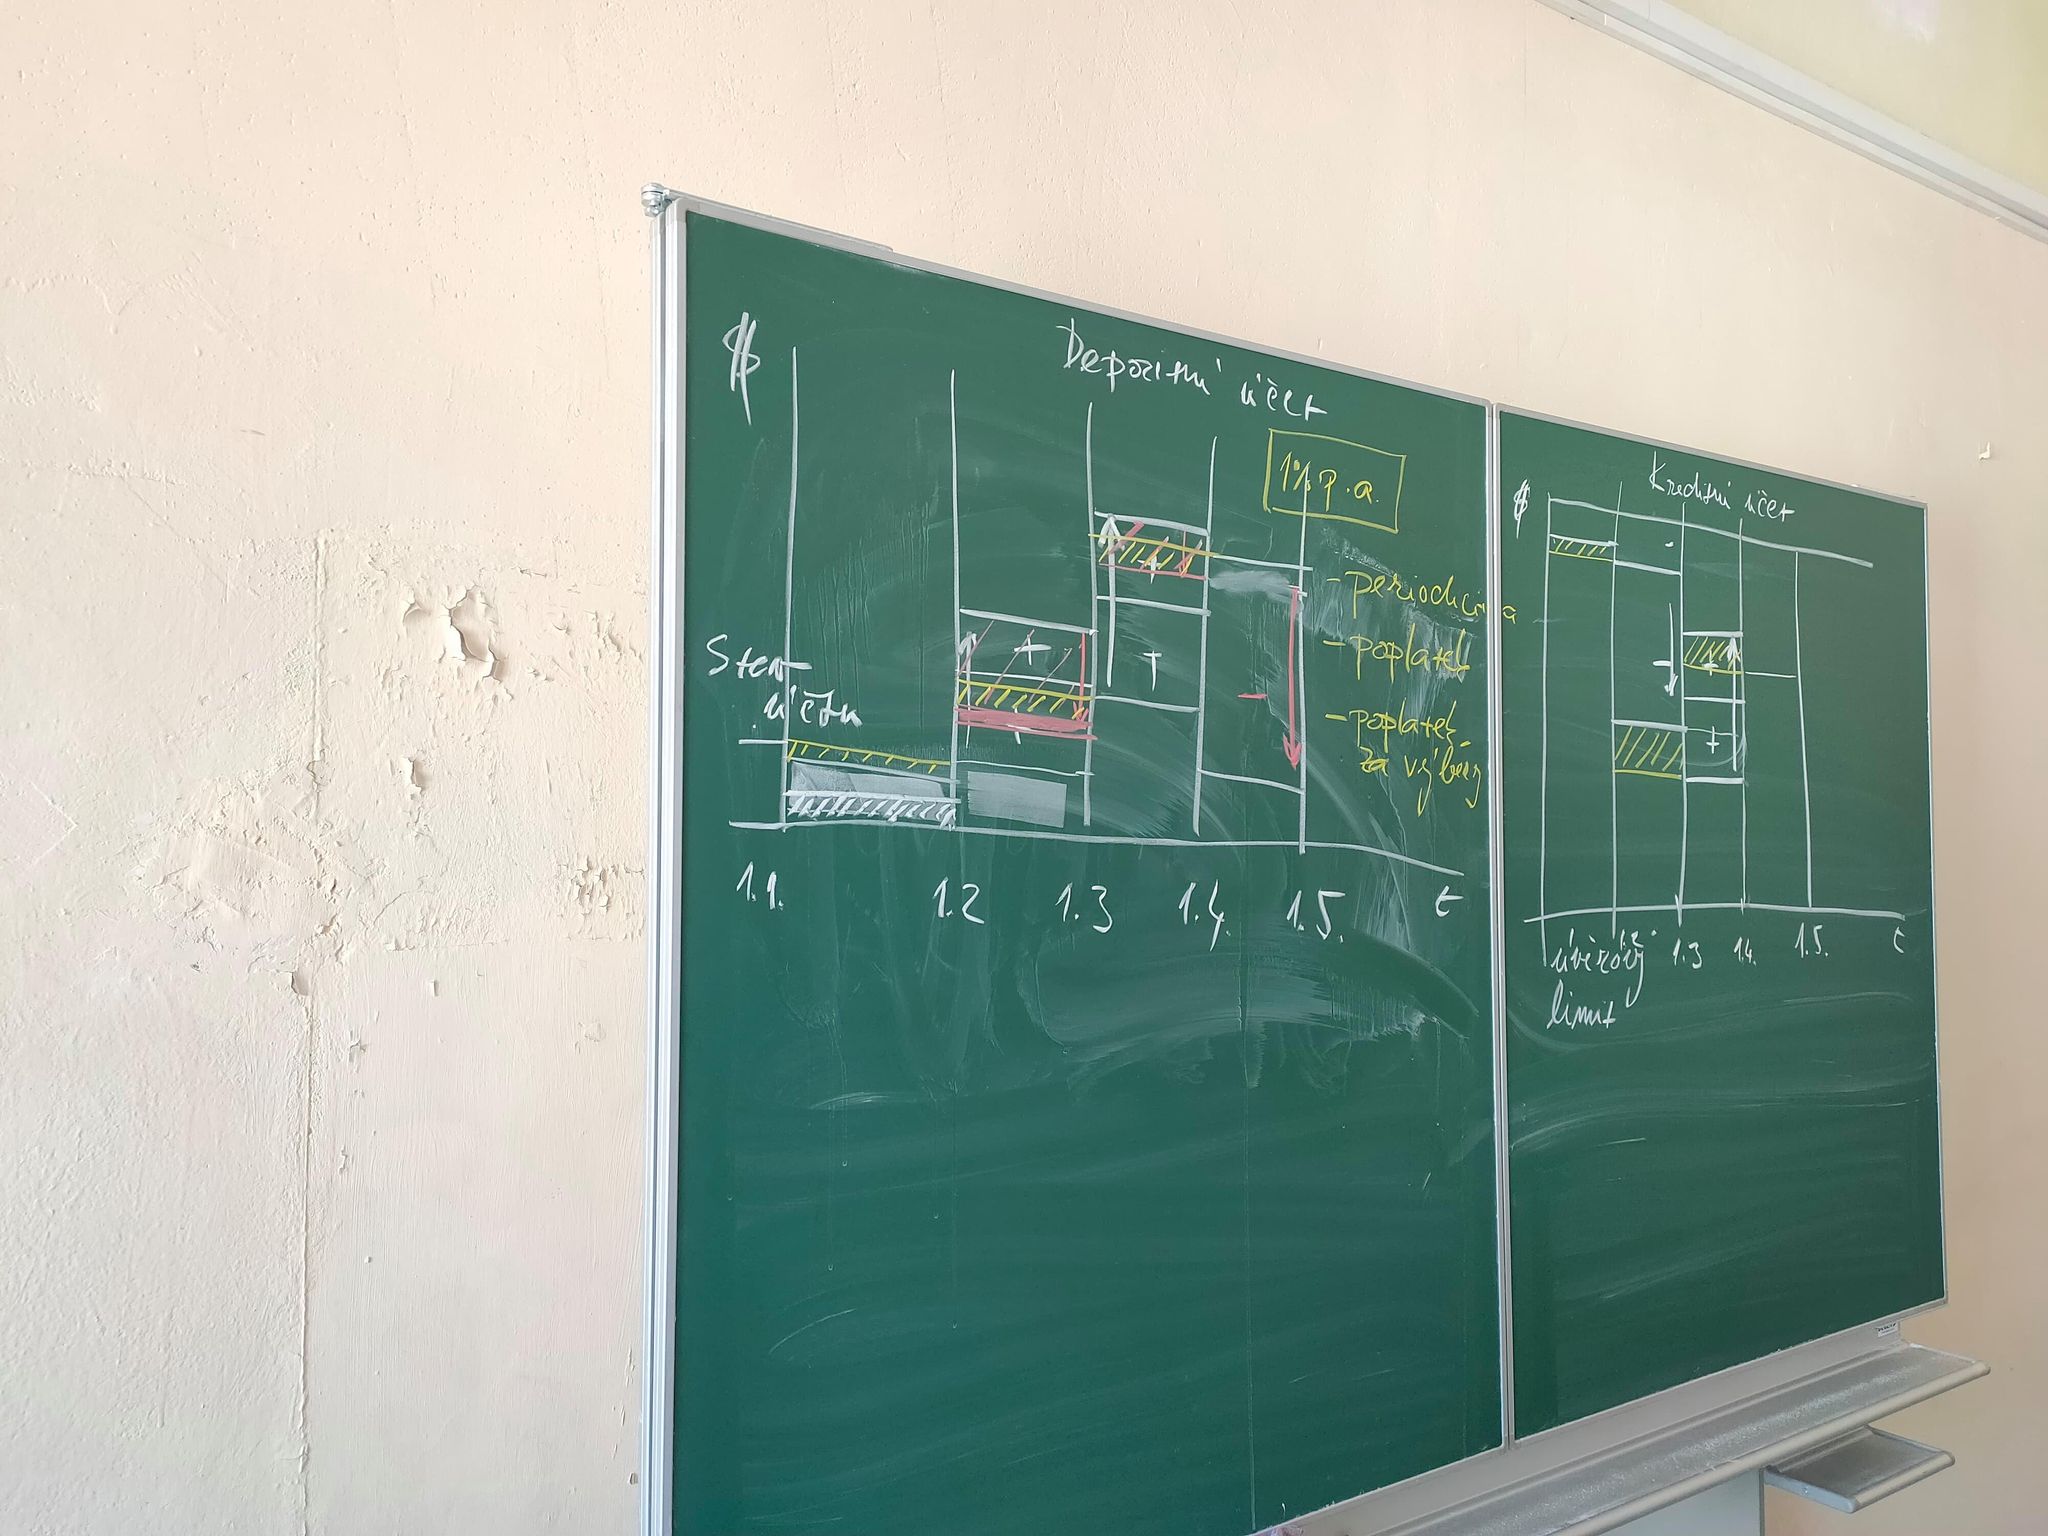 $
Depozitní účet
1% p.a.
- periodicita
- poplatek
- poplatek
za výběry
Stav
účtu
+
+
-
1.1.
1.2
1.3
1.4.
1.5.
t
$
Kreditní účet
-
+
+
úvěrový
limit
1.2.
1.3
1.4.
1.5.
t